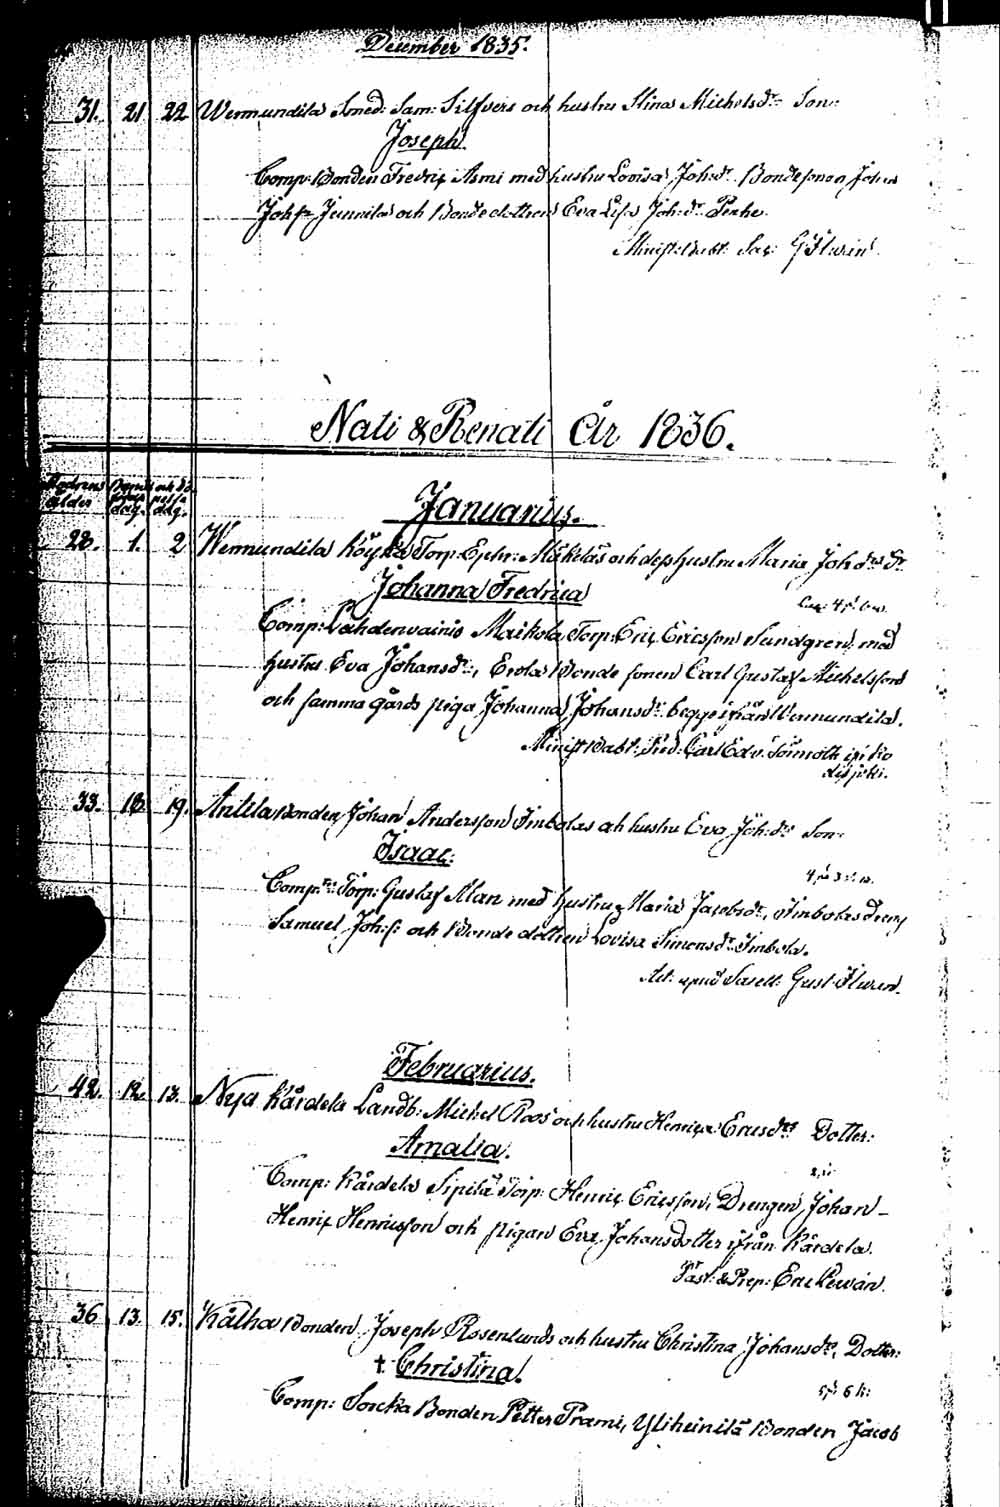 December 1835.
31. 21 22 Wermundila Smed: Sam: Silfvers och hustru Stina Michelsdr Son:
Joseph.
Comp: Bonden Fredric Asmi med hustru Lovisa Joh:dr Bondesonen Johan
Johs: Junnila och Bondedottren Eva Lisa Joh:dr Penhe.
Minist: Babt: Sac: G Ilwan.
Nati & Renati År 1836.
Modrens ålder dag. dag.
Januarius.
28. 1. 2 Wermundila Torp: Ephr: Mäkeläs och dess hustru Maria Joh dr
Johanna Fredrica
Comp: Lahdenvainio Maikola Torp: Eric Ericsson Sundgren med
hustru Eva Johansdr, Erola Bonde sonen Carl Gustaf Michelsson
och samma gårds piga Johanna Johansdr begge ifrån Wermundila.
Minist Babt: Carl Edv:
33. 18. 19. Anttila Bonden Johan Andersson Imbolas och hustru Eva Joh:dr Son:
Isaac.
Comp: Torp: Gustaf Man med hustru Maria Jacobsdr, Imbolas Dreng
Samuel Joh:s: och Bonde dottren Lovisa Simonsdr Imbola.
Act: apud Sacell: Gust Ilwan.
Februarius.
42. 12. 13. Nya Kårdela Landb: Michel Roos och hustru Henrica Ericsdr Dotter:
Amalia.
Comp: Kårdela Sipilä Torp: Henric Ericsson, Drengen Johan-
Henric Henricsson och pigan Eva Johansdotter ifrån Kårdela.
Past: & Prep: Eric Lewan.
36 13. 15. Kålha Bonden Joseph Rosenlunds och hustru Christina Johansdr, Dotter:
† Christina.
Comp: Sorcka Bonden Petter Prami, Yliheinilä Bonden Jacob